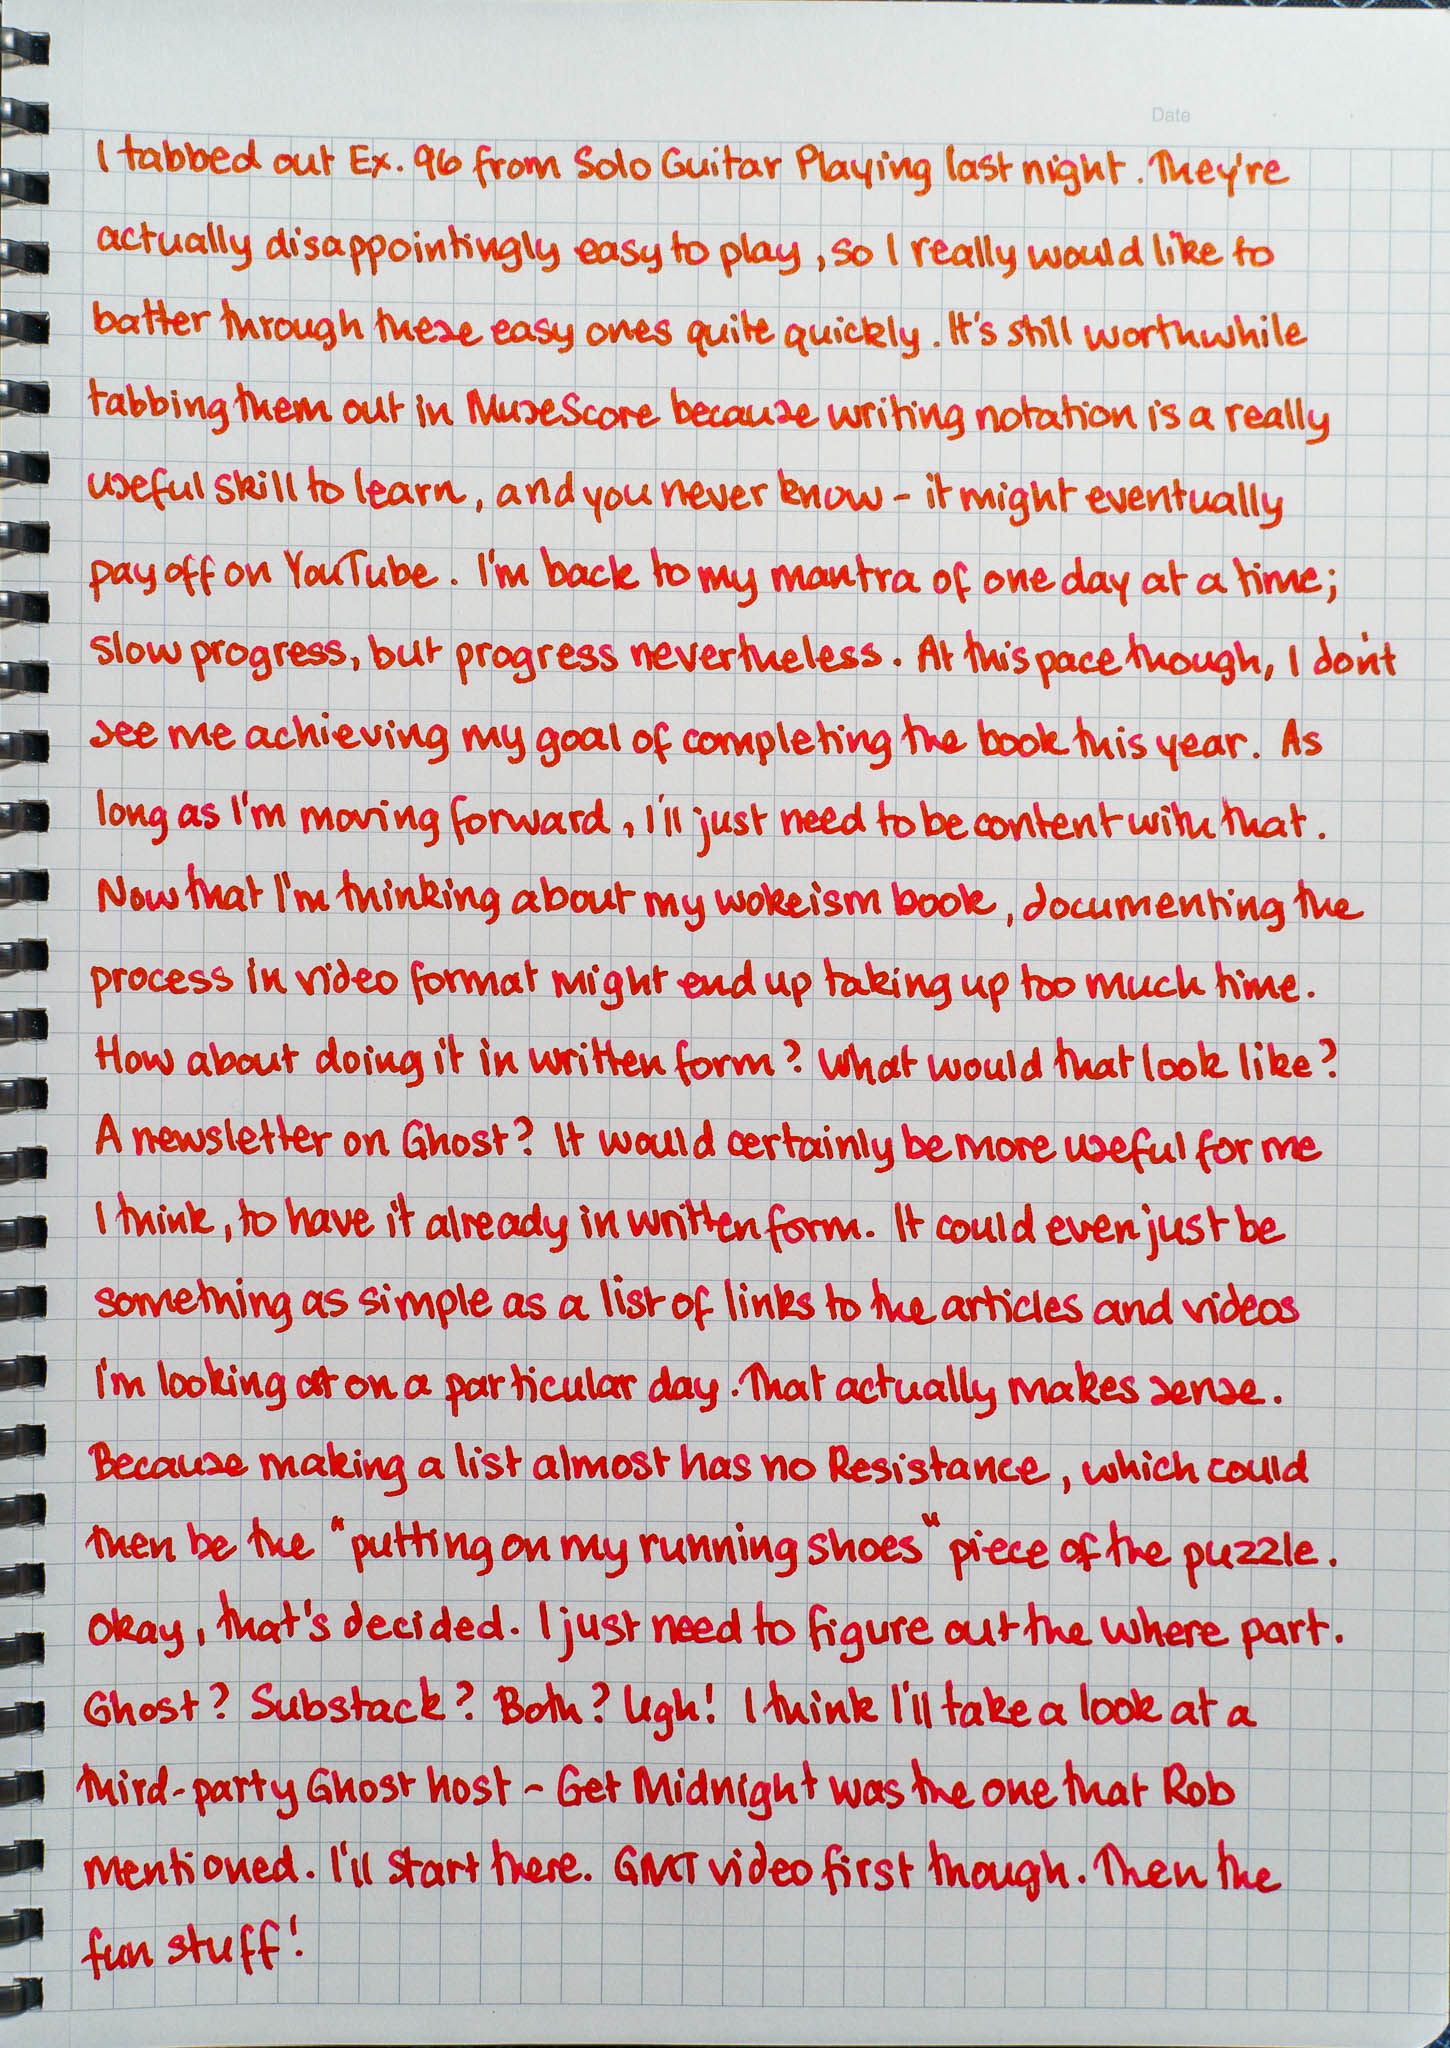 Date
I tabbed out Ex. 96 from Solo Guitar Playing last night. They're
actually disappointingly easy to play, so I really would like to
batter through these easy ones quite quickly. It's still worthwhile
tabbing them out in MuseScore because writing notation is a really
useful skill to learn, and you never know - it might eventually
pay off on YouTube. I'm back to my mantra of one day at a time;
slow progress, but progress nevertheless. At this pace though, I don't
see me achieving my goal of completing the book this year. As
long as I'm moving forward, I'll just need to be content with that.
Now that I'm thinking about my wokeism book, documenting the
process in video format might end up taking up too much time.
How about doing it in written form? What would that look like?
A newsletter on Ghost? It would certainly be more useful for me
I think, to have it already in written form. It could even just be
something as simple as a list of links to the articles and videos
I'm looking at on a particular day. That actually makes sense.
Because making a list almost has no Resistance, which could
then be the "putting on my running shoes" piece of the puzzle.
Okay, that's decided. I just need to figure out the where part.
Ghost? Substack? Both? Ugh! I think I'll take a look at a
third-party Ghost host - Get Midnight was the one that Rob
mentioned. I'll start there. GMT video first though. Then the
fun stuff!